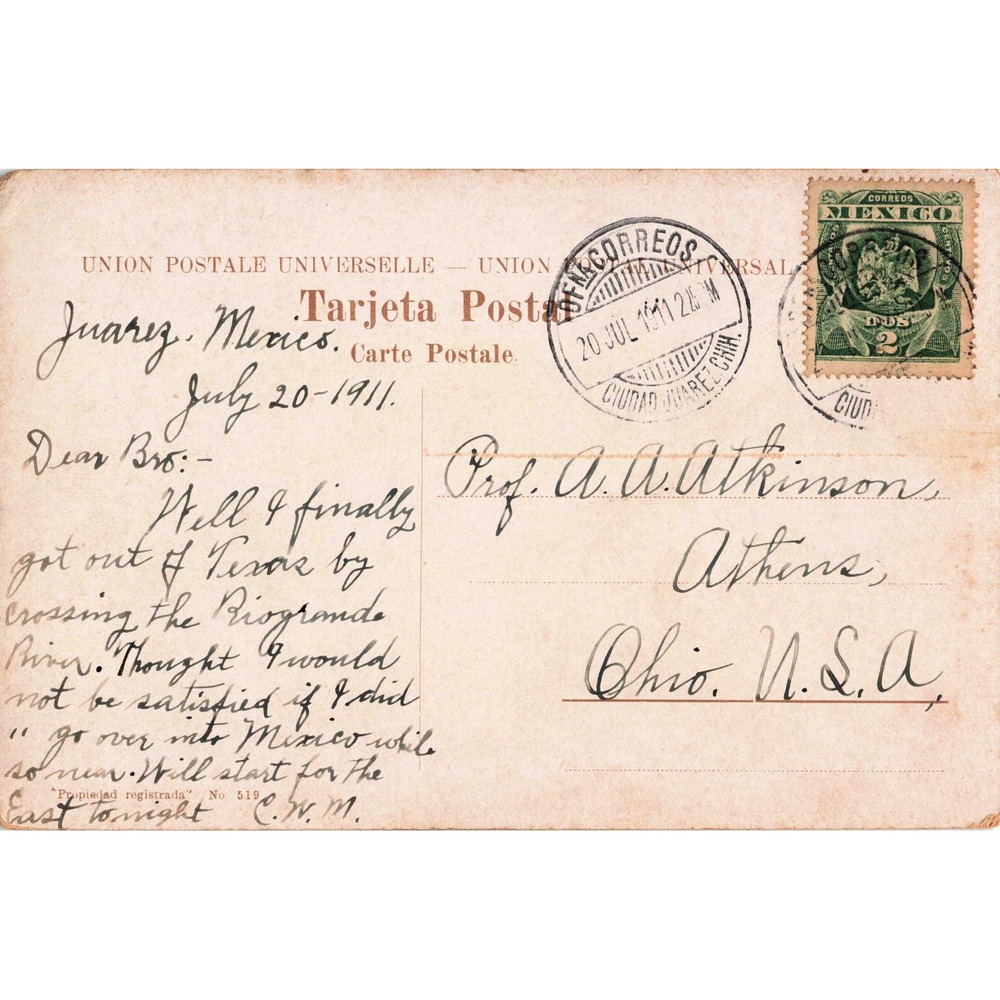 UNION POSTALE UNIVERSELLE — UNION UNIVERSAL
Tarjeta Postal
Carte Postale.
CORREOS
MEXICO
DOS
2
CORREOS
20 JUL 1911 2
CIUDAD JUAREZ CHIH.
CIUD
Juarez. Mexico.
July 20-1911.
Dear Bro:-
Well I finally
got out of Texas by
crossing the Riogrande
River. Thought I would
not be satisfied if I did
" go over into Mexico while
so near. Will start for the
East tonight C.W.M.
"Propiedad registrada" No 519
Prof. A. A. Atkinson,
Athens,
Ohio. U. S. A,